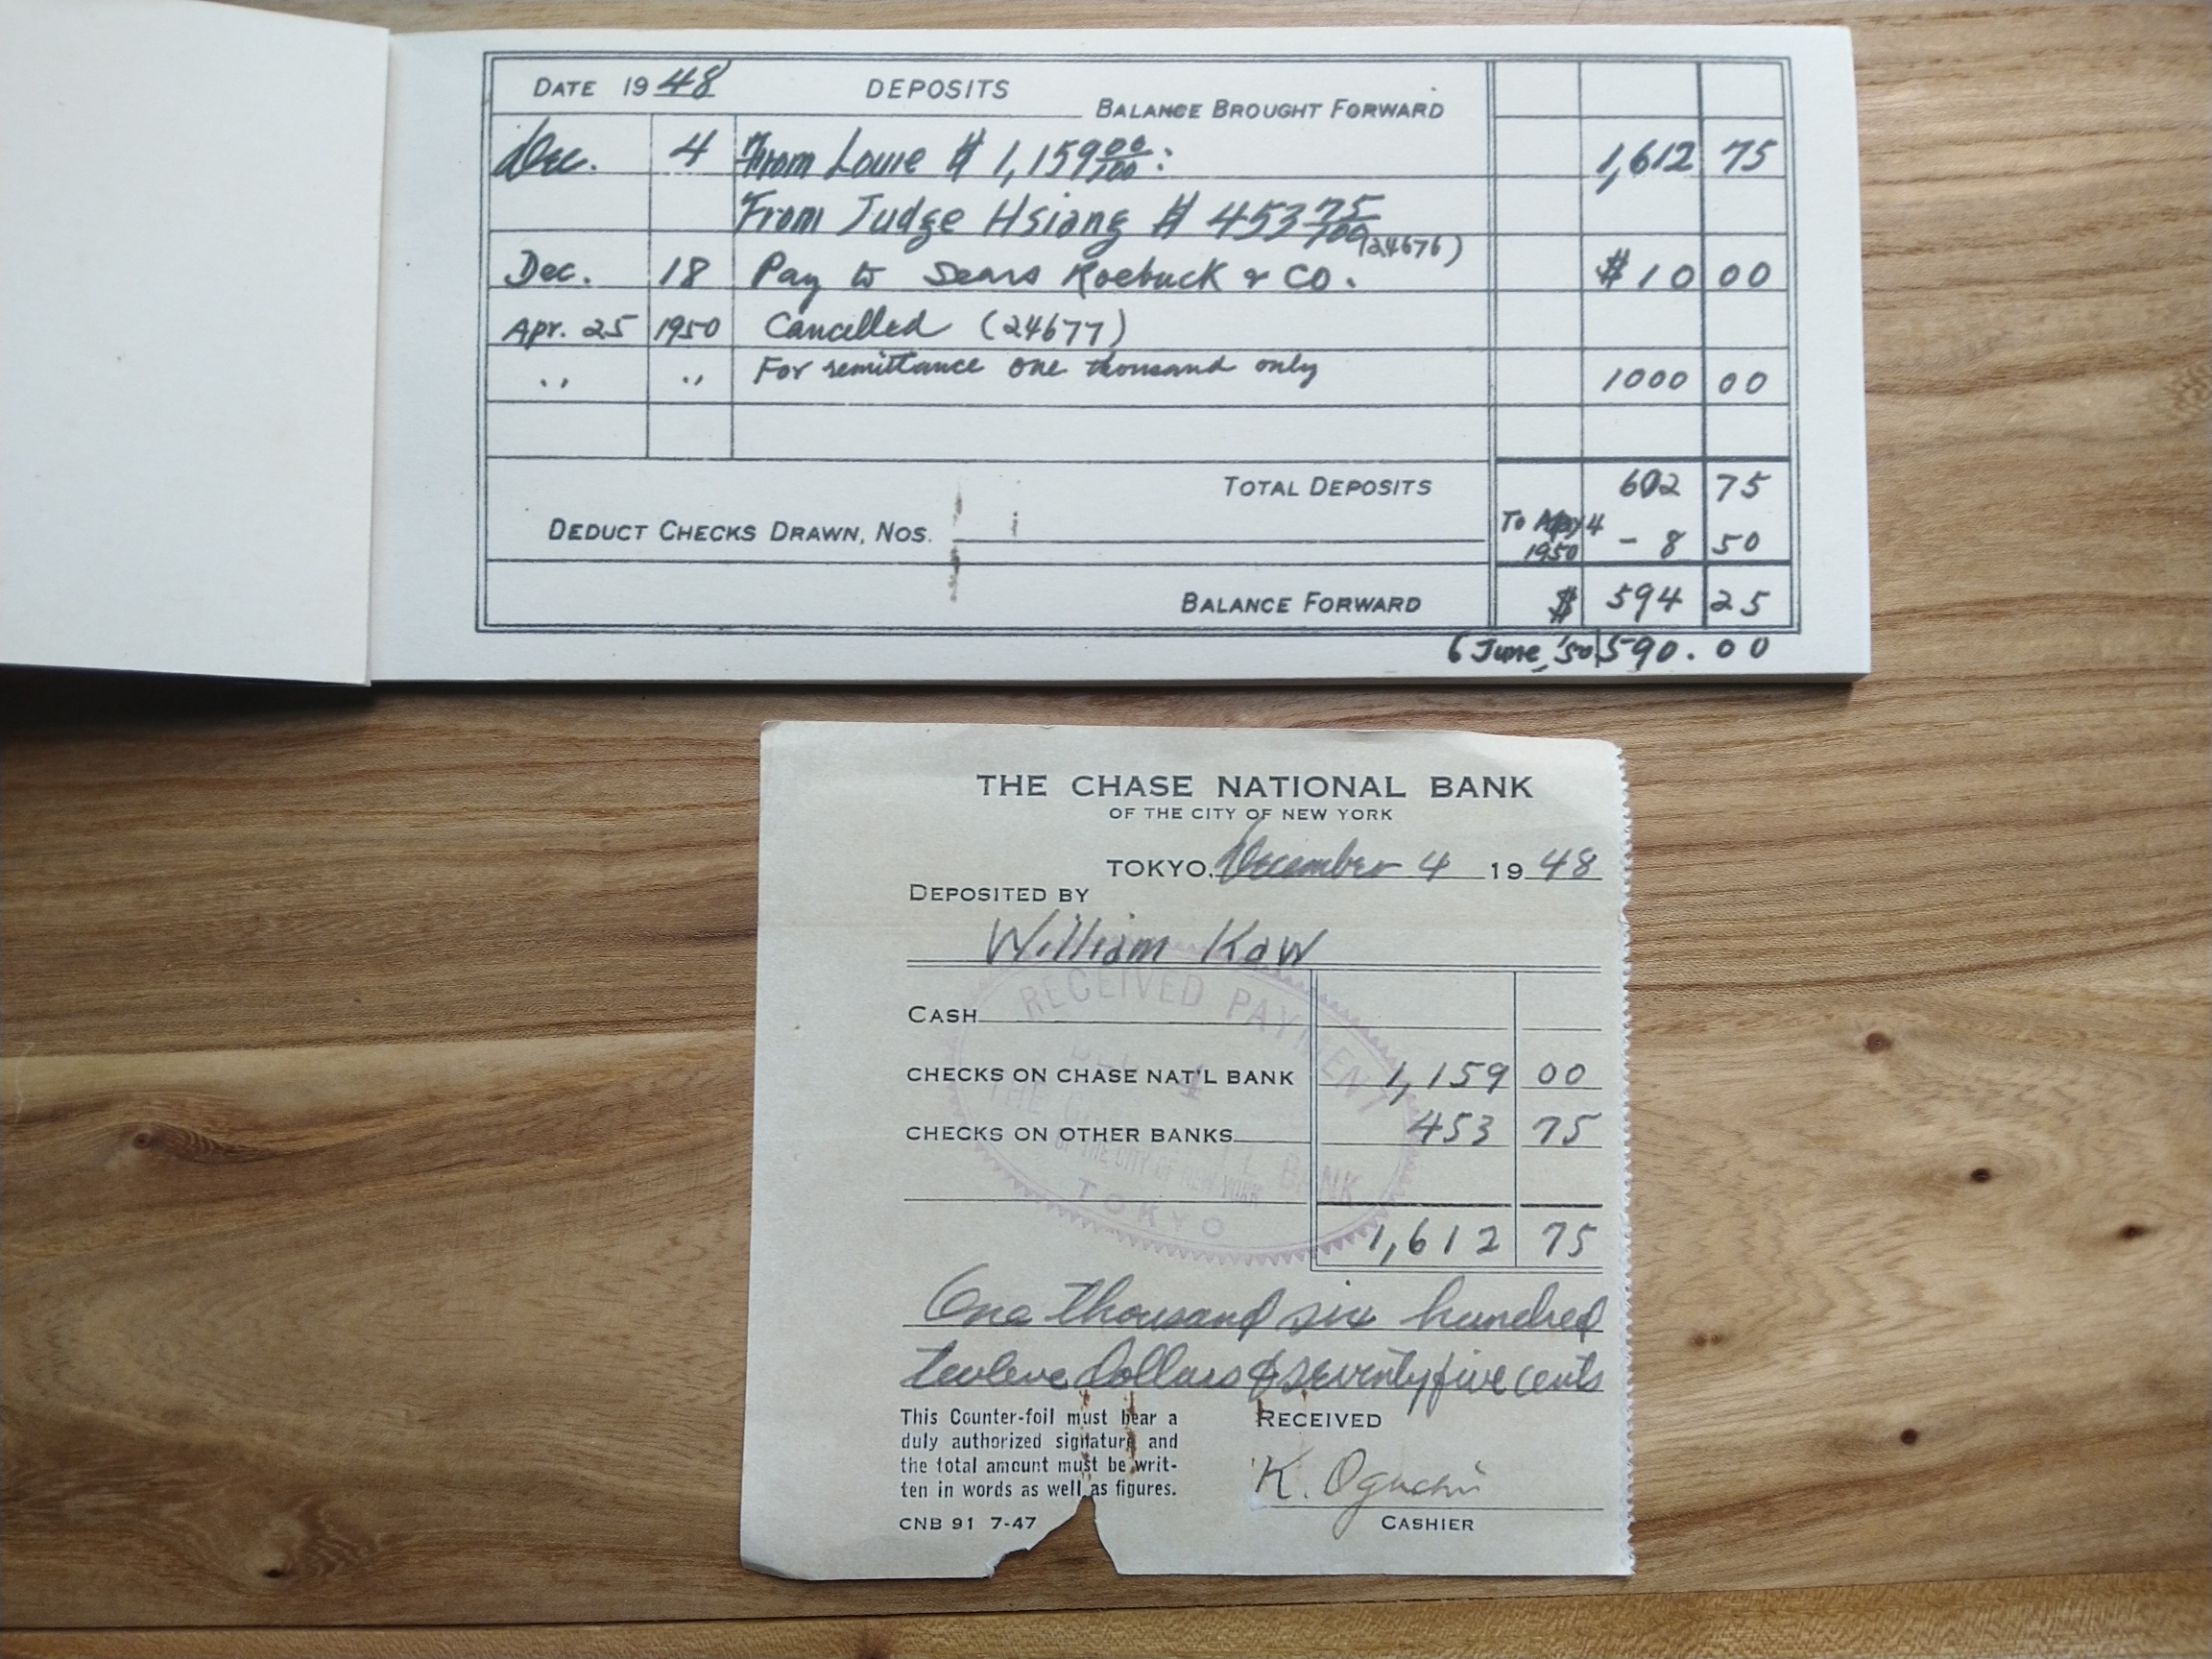 DATE 1948 DEPOSITS
BALANCE BROUGHT FORWARD
Dec. 4 From Louie $ 1,159 00/100 : 1,612 75
From Judge Hsiang $ 453 75/100
(24676)
Dec. 18 Pay to Sears Roebuck & CO. $10 00
Apr. 25 1950 Cancelled (24677)
" " For remittance one thousand only 1000 00
TOTAL DEPOSITS 602 75
DEDUCT CHECKS DRAWN, NOS. To 4 1950 - 8 50
BALANCE FORWARD $ 594 25
6 June, '50 590.00
THE CHASE NATIONAL BANK
OF THE CITY OF NEW YORK
TOKYO, December 4 1948
DEPOSITED BY
William Kaw
RECEIVED PAYMENT
CASH
CHECKS ON CHASE NAT'L BANK 1,159 00
CHECKS ON OTHER BANKS 453 75
OF THE CITY OF NEW YORK
TOKYO
1,612 75
One thousand six hundred
twelve dollars & seventy five cents
This Counter-foil must bear a
duly authorized signature and
the total amount must be writ-
ten in words as well as figures.
CNB 91 7-47
RECEIVED
K. Oguchi
CASHIER